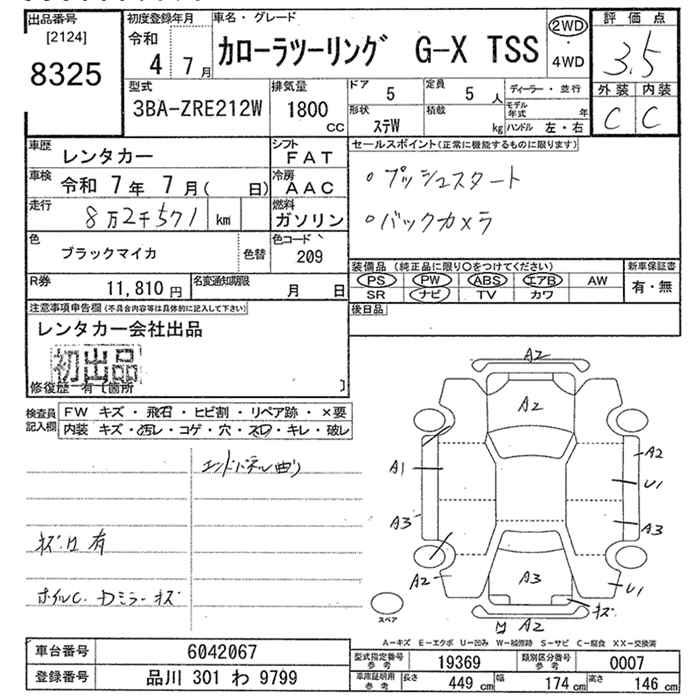 出品番号
[2124]
8325
初度登録年月
令和
4年7月
車名・グレード
カローラツーリング G-X TSS
2WD
・
4WD
評価点
3.5
外装 内装
C C
型式
3BA-ZRE212W
排気量
1800
cc
ドア
5
定員
5人
ディーラー・並行
形状
ステW
積載
kg
モデル年式 年
ハンドル 左・右
車歴
レンタカー
シフト
FAT
車検
令和 7年 7月( 日)
冷房
AAC
走行
8万2千571 km
燃料
ガソリン
色
ブラックマイカ
色替
色コード
209
R券
11,810円
名変通知期限
月 日
セールスポイント(正常に機能するものに限ります)
・プッシュスタート
・バックカメラ
装備品 (純正品に限り○をつけてください)
PS PW ABS エアB AW
SR ナビ TV カワ
新車保証書
有・無
後日品
注意事項申告欄(不具合内容等は具体的に記入して下さい)
レンタカー会社出品
初出品
修復歴 有[箇所 ]
検査員記入欄
FW キズ・飛石・ヒビ割・リペア跡・×要
内装 キズ・汚レ・コゲ・穴・スレ・キレ・破レ
エンドパネル曲り
キズ凹有
ホイルC. Dミラーキズ
A2
A2
A1
A2
U1
A3
A3
A2
A3
U1
キズ
A2
スペア
A-キズ E-エクボ U-凹み W-補修跡 S-サビ C-腐食 XX-交換済
車台番号
6042067
登録番号
品川 301 わ 9799
型式指定番号
参考
19369
類別区分番号
参考
0007
車庫証明用
参考
長さ 449 cm
幅 174 cm
高さ 146 cm